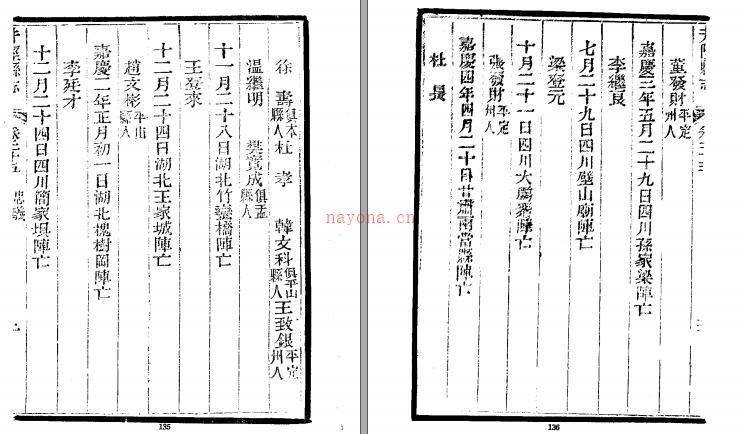 徐壽俱本縣人杜孝 韓文科俱平山縣人王致銀平定州人
溫繼明 樊寶成俱盂縣人
十一月二十八日湖北竹谿橋陣亡
王登來
十二月二十四日湖北王家城陣亡
趙文彬平山縣人
嘉慶二年正月初一日湖北槐樹岡陣亡
李廷才
十二月二十四日四川簡家垻陣亡
井陘縣志 忠義
135
董發財平定州人
嘉慶三年五月二十九日四川孫家梁陣亡
李繼良
七月二十九日四川壁山廟陣亡
梁登元
十月二十一日四川大鵬寨陣亡
張發財平定州人
嘉慶四年四月二十日甘肅兩當縣陣亡
杜
136
nayona.cn